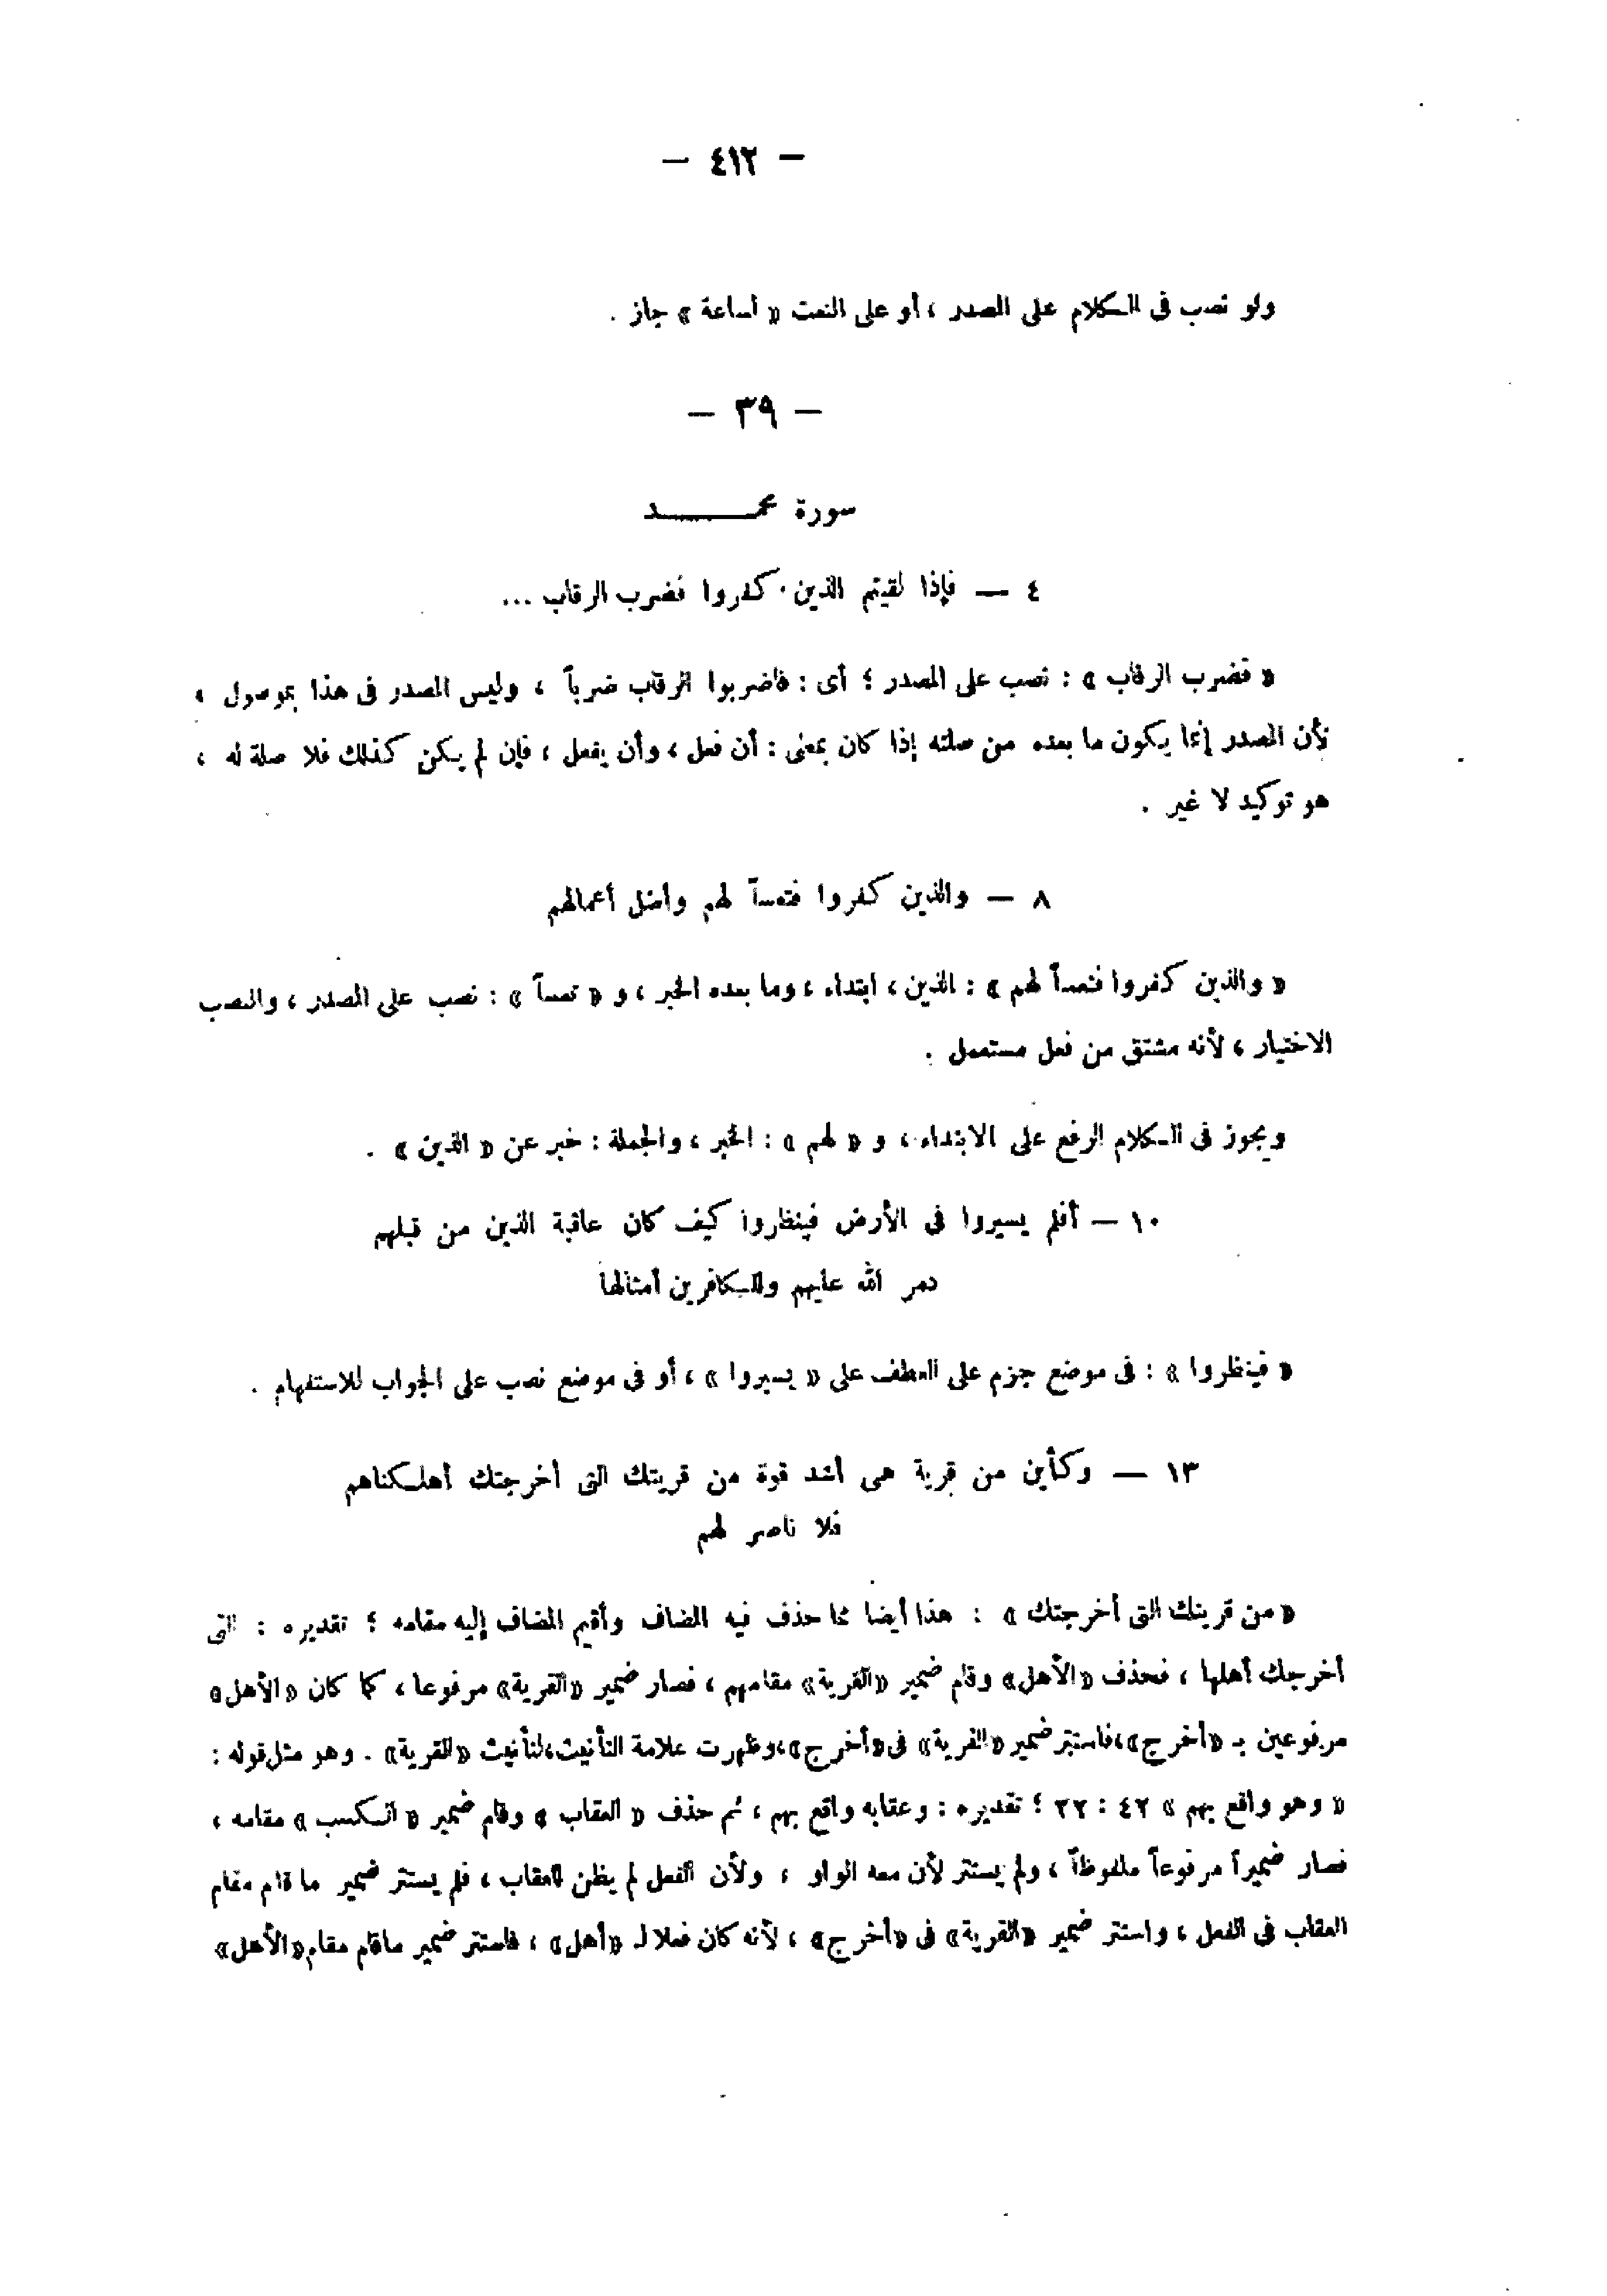 — ٤١٢ —
ولو نصب فى الكلام على المصدر ، أو على النعت « لساعة » جاز .
— ٣٩ —
سورة محمد
٤ — فإذا لقيتم الذين كفروا فضرب الرقاب ...
« فضرب الرقاب » : نصب على المصدر ؛ أى : فاضربوا الرقاب ضرباً ، وليس المصدر فى هذا بموصول ،
لأن المصدر إنما يكون ما بعده من صلته إذا كان بمعنى : أن فعل ، وأن يفعل ، فإن لم يكن كذلك فلا صلة له ،
هو توكيد لا غير .
٨ — والذين كفروا فتعساً لهم وأضل أعمالهم
« والذين كفروا فتعساً لهم » : الذين ، ابتداء ، وما بعده الخبر ، و « تعساً » : نصب على المصدر ، والنصب
الاختيار ، لأنه مشتق من فعل مستعمل .
ويجوز فى الكلام الرفع على الابتداء ، و « لهم » : الخبر ، والجملة : خبر عن « الذين » .
١٠ — أفلم يسيروا فى الأرض فينظروا كيف كان عاقبة الذين من قبلهم
دمر الله عليهم وللكافرين أمثالها
« فينظروا » : فى موضع جزم على العطف على « يسيروا » ، أو فى موضع نصب على الجواب للاستفهام .
١٣ — وكأين من قرية هى أشد قوة من قريتك التى أخرجتك أهلكناهم
فلا ناصر لهم
« من قريتك التى أخرجتك » : هذا أيضا مما حذف فيه المضاف وأقيم المضاف إليه مقامه ؛ تقديره : التى
أخرجك أهلها ، فحذف «الأهل» وقام ضمير «القرية» مقامهم ، فصار ضمير «القرية» مرفوعا ، كما كان «الأهل»
مرفوعين بـ «أخرج»،فاستتر ضمير «القرية» فى«أخرج»،وظهرت علامة التأنيث،لتأنيث «القرية» . وهو مثل قوله :
« وهو واقع بهم » ٤٢ : ٢٢ ؛ تقديره : وعقابه واقع بهم ، ثم حذف « العقاب » وقام ضمير « الكسب » مقامه ،
فصار ضميراً مرفوعاً ملفوظاً ، ولم يستتر لأن معه الواو ، ولأن الفعل لم يظن للعقاب ، فلم يستتر ضمير ما قام مقام
العقاب فى الفعل ، واستتر ضمير «القرية» فى «أخرج» ، لأنه كان فعلا لـ «أهل» ، فاستتر ضمير ماقام مقام«الأهل»